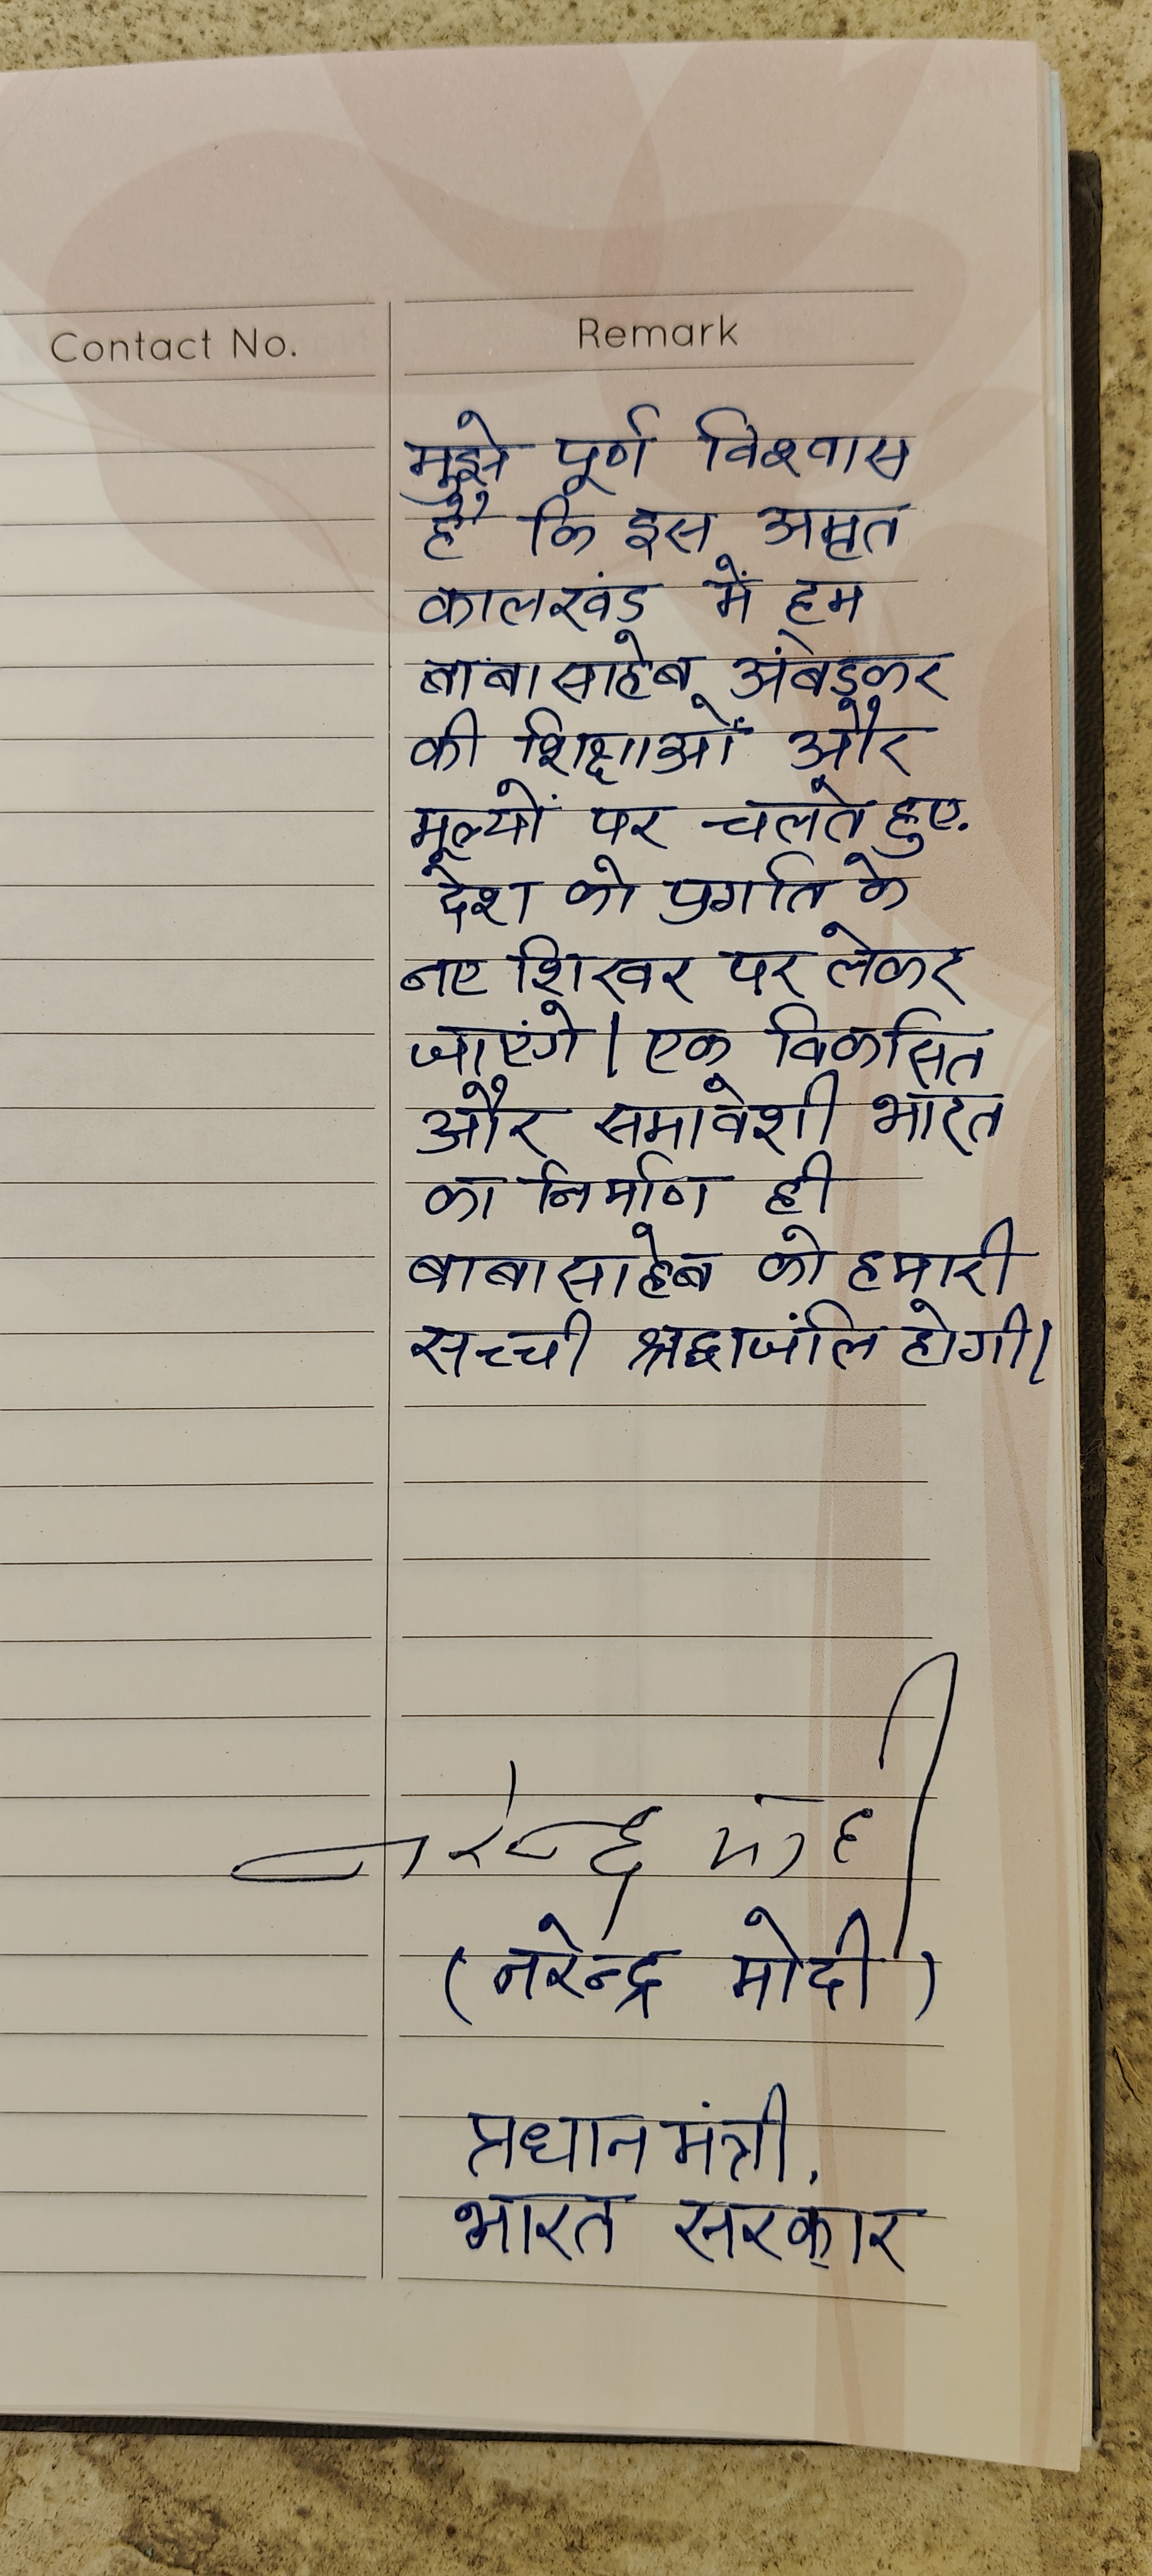 Contact No.
Remark
मुझे पूर्ण विश्वास
है कि इस अमृत
कालखंड में हम
बाबासाहेब अंबेडकर
की शिक्षाओं और
मूल्यों पर चलते हुए
देश को प्रगति के
नए शिखर पर लेकर
जाएंगे। एक विकसित
और समावेशी भारत
का निर्माण ही
बाबासाहेब को हमारी
सच्ची श्रद्धाजंलि होगी।
नरेन्द्र मोदी
(नरेन्द्र मोदी)
प्रधानमंत्री,
भारत सरकार